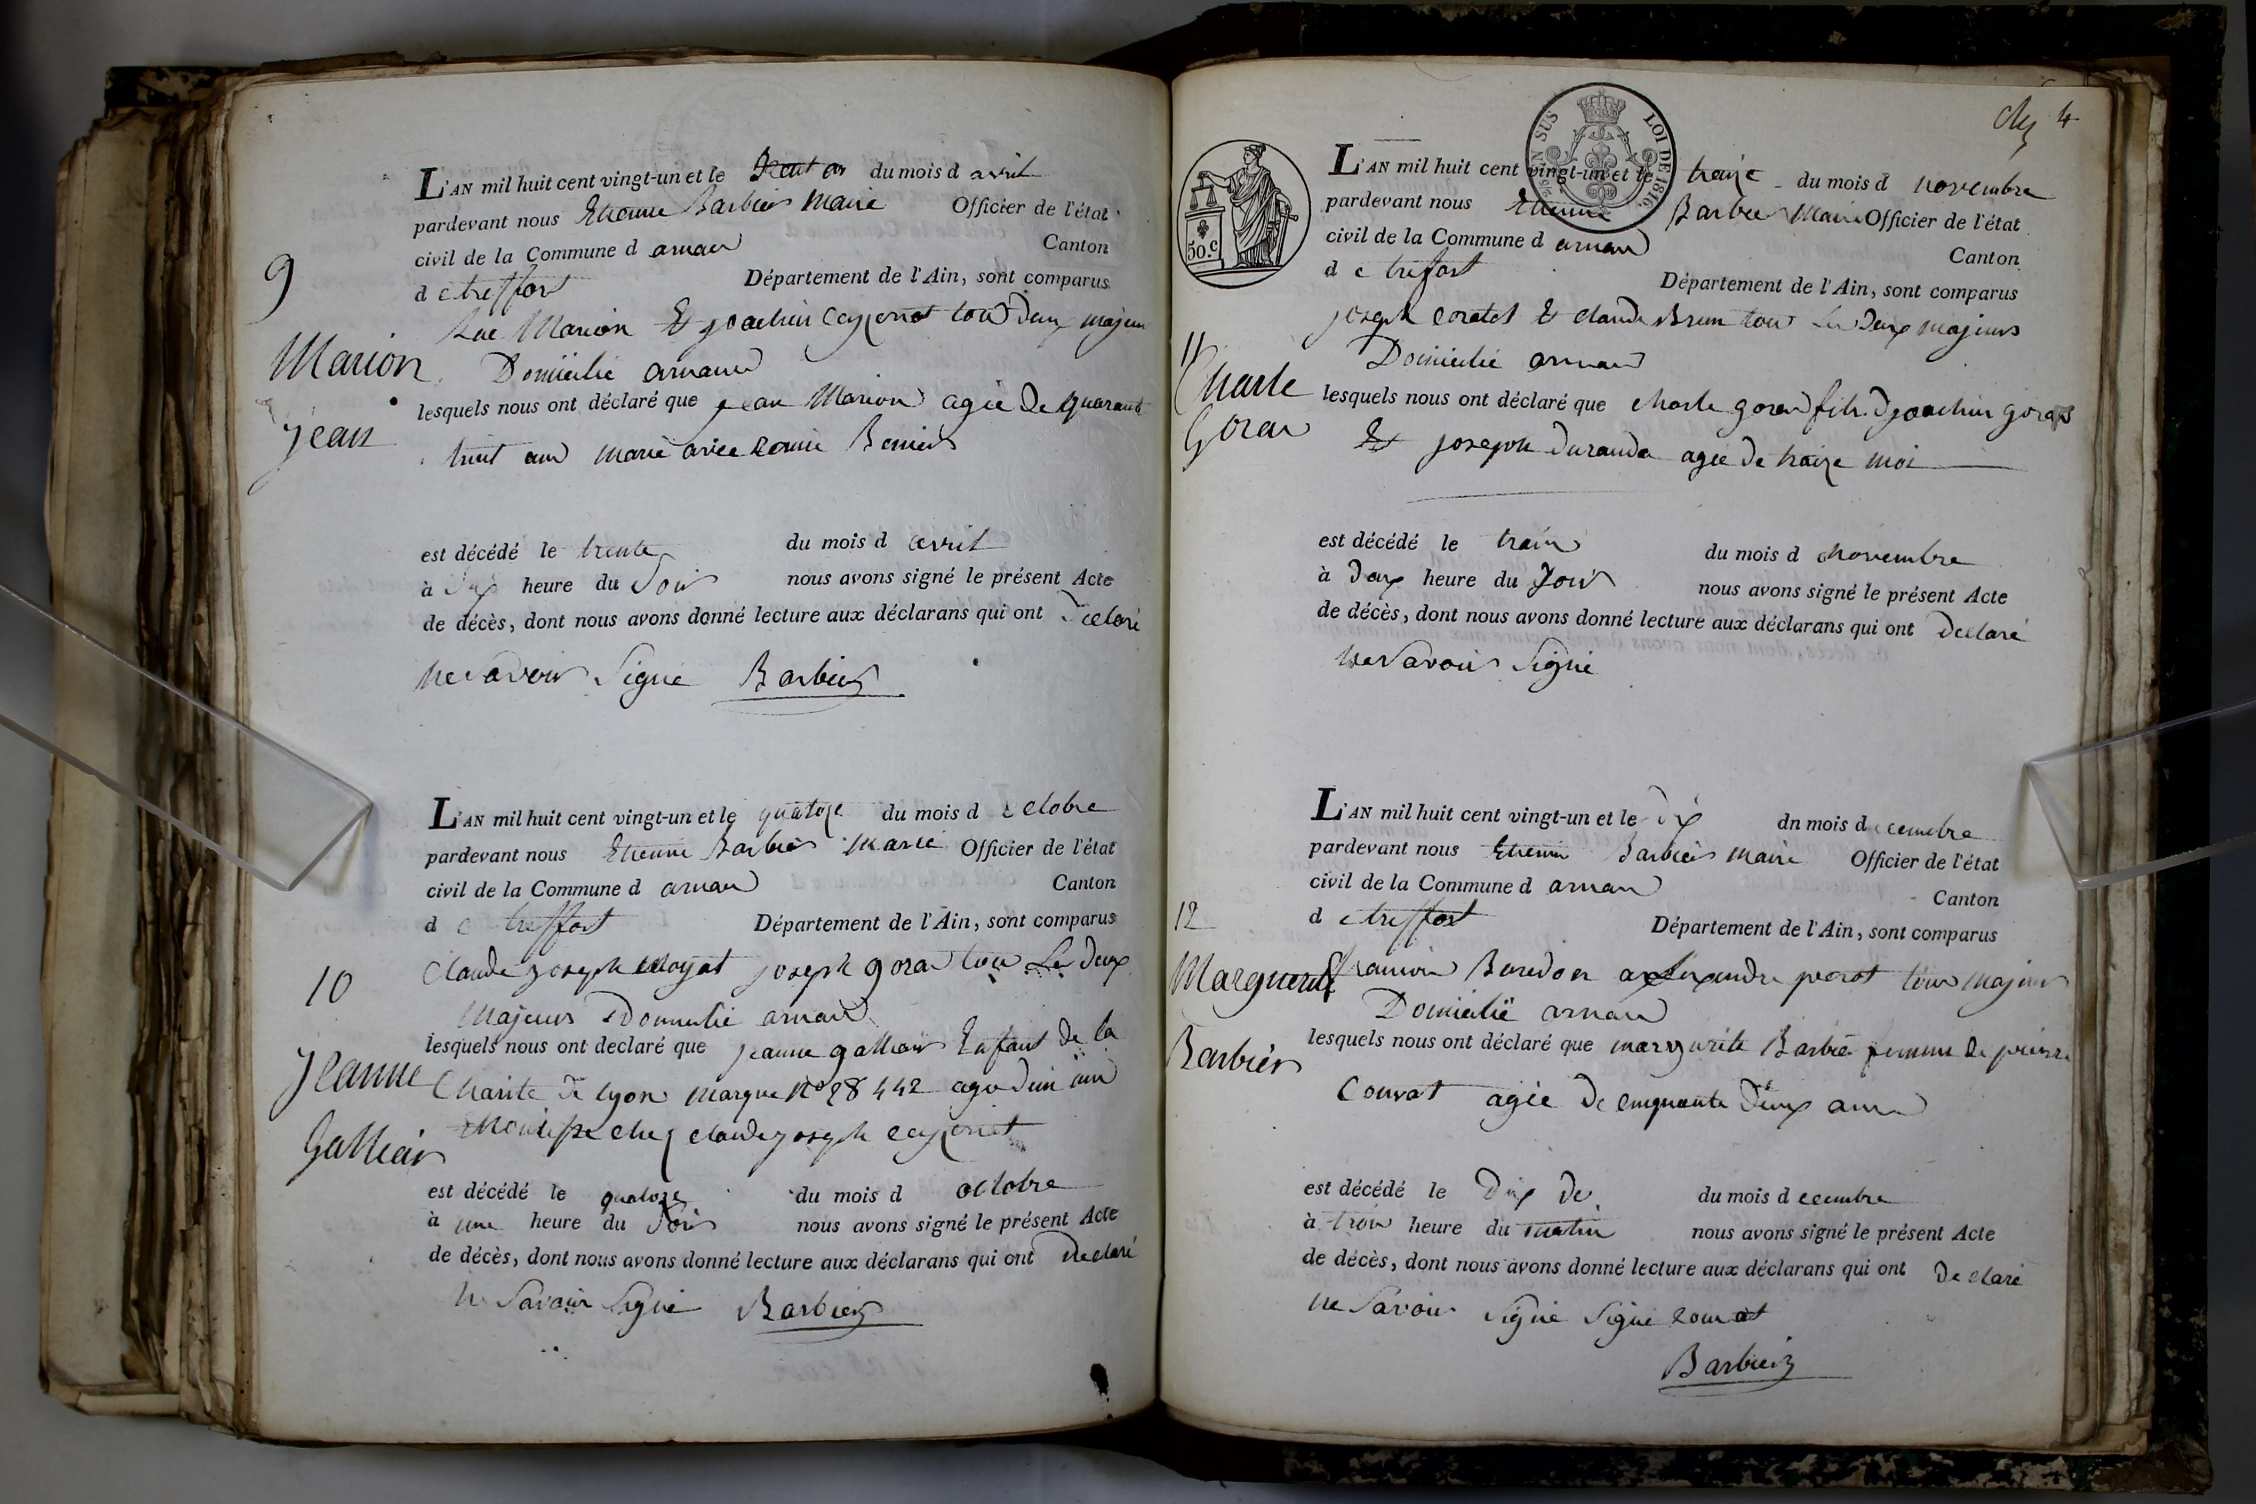 9
Marion
jean
L'AN mil huit cent vingt-un et le du mois d avril
pardevant nous Etienne Barbier Maire Officier de l'état
civil de la Commune d arnan Canton
d e treffort Département de l'Ain, sont comparus
Marion Et joachin tous deux majeur
Domicilié arnand
lesquels nous ont déclaré que jean Marion agée de quarant
huit ans marié avec
est décédé le trente du mois d avril
à dix heure du Soir nous avons signé le présent Acte
de décès, dont nous avons donné lecture aux déclarans qui ont declaré
ne Savoir Signé Barbier
10
jeanne
L'AN mil huit cent vingt-un et le quatoze du mois d octobre
pardevant nous Etienne Barbier Maire Officier de l'état
civil de la Commune d arnan Canton
d e treffort Département de l'Ain, sont comparus
Claude joseph joseph goran tous Les Deux
Majeurs Domicilié arnand
lesquels nous ont declaré que jeanne Enfant de la
Charite de lyon marque No 28442 agée d'un ans
chez claude joseph
est décédé le quatoze du mois d octobre
à une heure du Soir nous avons signé le présent Acte
de décès, dont nous avons donné lecture aux déclarans qui ont Declaré
ne Savoir Signé Barbier
4
TIMBRE SUS LOI DE 1816.
50.c
11
Charle
Goran
L'AN mil huit cent vingt-un et le traize du mois d novembre
pardevant nous Etienne Barbier Maire Officier de l'état
civil de la Commune d arnan Canton
d e trefort Département de l'Ain, sont comparus
joseph Et claude Brun tous Les deux majeurs
Domicilié arnand
lesquels nous ont déclaré que charle goran fils d joachin goran
Et joseph duranda agée de traize moi
est décédé le du mois d novembre
à deux heure du Soir nous avons signé le présent Acte
de décès, dont nous avons donné lecture aux déclarans qui ont Declaré
ne Savoir Signé
12
Marguerite
Barbier
L'AN mil huit cent vingt-un et le dix dn mois d ecembre
pardevant nous Etienne Barbier Maire Officier de l'état
civil de la Commune d arnan Canton
d e treffort Département de l'Ain, sont comparus
perot tous Majeurs
Domicilié arnan
lesquels nous ont déclaré que margurite Barbié femme de pierre
Convat agée De cinquante Deux ans
est décédé le Dix De du mois d ecembre
à trois heure du matin nous avons signé le présent Acte
de décès, dont nous avons donné lecture aux déclarans qui ont Declaré
ne Savoir Signé Signé
Barbier